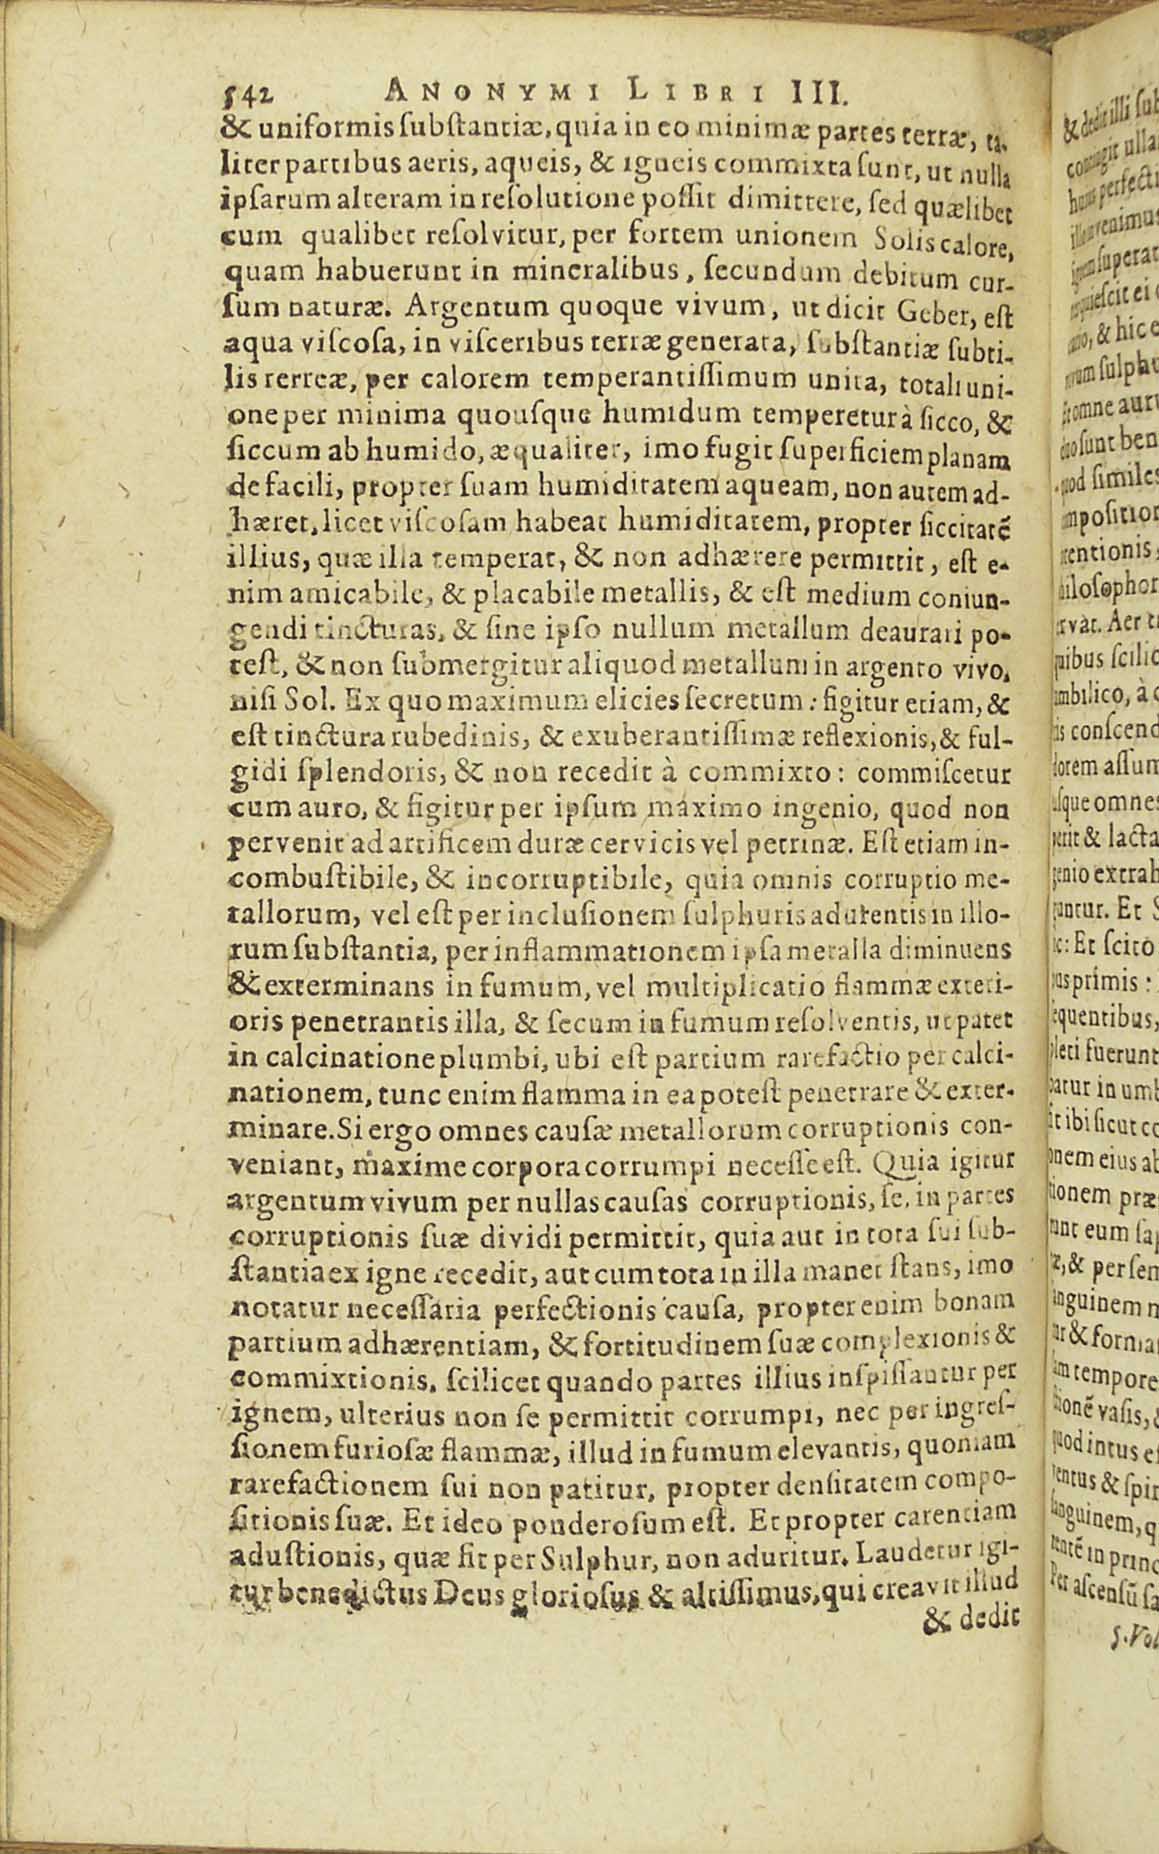 542 ANONYMI LIBRI III.
& uniformis substantiæ, quia in eo minimæ partes terræ, ta-
liter partibus aeris, aqueis, & igneis commixta sunt, ut nulla
ipsarum alteram in resolutione possit dimittere, sed quælibet
cum qualibet resolvitur, per fortem unionem Solis calore,
quam habuerunt in mineralibus, secundum debitum cur-
sum naturæ. Argentum quoque vivum, ut dicit Geber, est
aqua viscosa, in visceribus terræ generata, substantiæ subti-
lis terreæ, per calorem temperantissimum unita, totali uni-
one per minima quousque humidum temperetur à sicco, &
siccum ab humido, æqualiter, imo fugit superficiem planam
de facili, propter suam humiditatem aqueam, non autem ad-
hæret, licet viscosam habeat humiditatem, propter siccitatẽ
illius, quæ illa temperat, & non adhærere permittit, est e-
nim amicabile, & placabile metallis, & est medium coniun-
gendi tincturas, & sine ipso nullum metallum deaurari po-
test, & non submergitur aliquod metallum in argento vivo,
nisi Sol. Ex quo maximum elicies secretum: figitur etiam, &
est tinctura rubedinis, & exuberantissimæ reflexionis, & ful-
gidi splendoris, & non recedit à commixto: commiscetur
cum auro, & figitur per ipsum maximo ingenio, quod non
pervenit ad artificem duræ cervicis vel petrinæ. Est etiam in-
combustibile, & incorruptibile, quia omnis corruptio me-
tallorum, vel est per inclusionem sulphuris adurentis in illo-
rum substantia, per inflammationem ipsa metalla diminuens
& exterminans in fumum, vel multiplicatio flammæ exteri-
oris penetrantis illa, & secum in fumum resolventis, ut patet
in calcinatione plumbi, ubi est partium rarefactio per calci-
nationem, tunc enim flamma in ea potest penetrare & exter-
minare. Si ergo omnes causæ metallorum corruptionis con-
veniant, maxime corpora corrumpi necesse est. Quia igitur
argentum vivum per nullas causas corruptionis, se, in partes
corruptionis suæ dividi permittit, quia aut in tota sui sub-
stantia ex igne recedit, aut cum tota in illa manet stans, imo
notatur necessaria perfectionis causa, propter enim bonam
partium adhærentiam, & fortitudinem suæ complexionis &
commixtionis, scilicet quando partes illius inspissantur per
ignem, ulterius non se permittit corrumpi, nec per ingres-
sionem furiosæ flammæ, illud in fumum elevantis, quoniam
rarefactionem sui non patitur, propter densitatem compo-
sitionis suæ. Et ideo ponderosum est. Et propter carentiam
adustionis, quæ fit per Sulphur, non aduritur. Laudetur igi-
tur benedictus Deus gloriosus & altissimus, qui creavit illud
& dedit